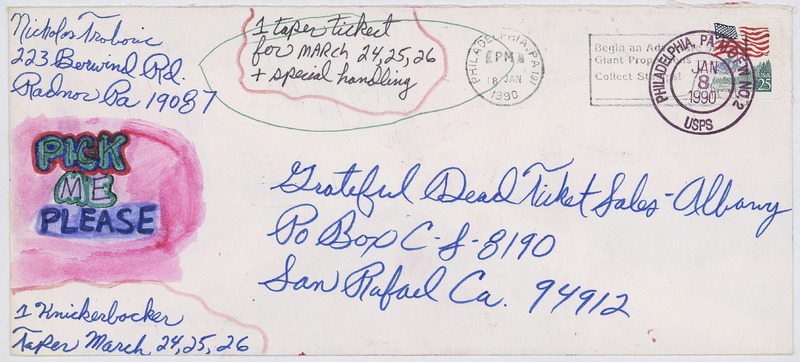 Nicholas
223 Berwind Rd.
Radnor Pa 19087
1 taper ticket
for MARCH 24, 25, 26
+ special handling
PHILADELPHIA, PA 191
PM
18 JAN
1990
Begin an Ad
Giant Prop
Collect St s!
PHILADELPHIA, PA NO. 2
JAN
8
1990
USPS
USA
25
PICK
ME
PLEASE
Grateful Dead Ticket Sales - Albany
Po Box C-S-8190
San Rafael Ca. 94912
1 Knickerbocker
Taper March 24, 25, 26